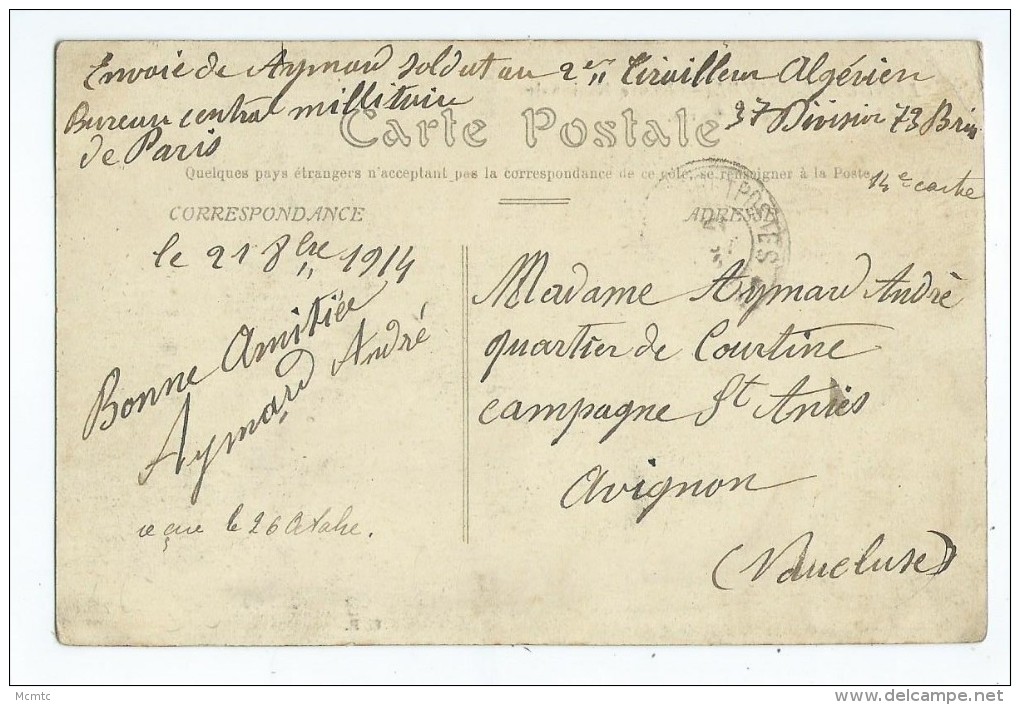 Envoie de Aymard Soldat au 2er Tirailleur Algérien
Bureau central millitaire 37 Division 73 Brig
de Paris
Carte Postale
Quelques pays étrangers n'acceptant pas la correspondance de ce côté, se renseigner à la Poste
14e carte
CORRESPONDANCE
le 21 8bre 1914
Bonne Amitiée
Aymard André
reçue le 26 Octobre.
ADRESSE
POSTES
Madame Aymard André
quartier de Courtine
campagne St Aniès
Avignon
(Vaucluse)
Mcmtc
www.delcampe.net